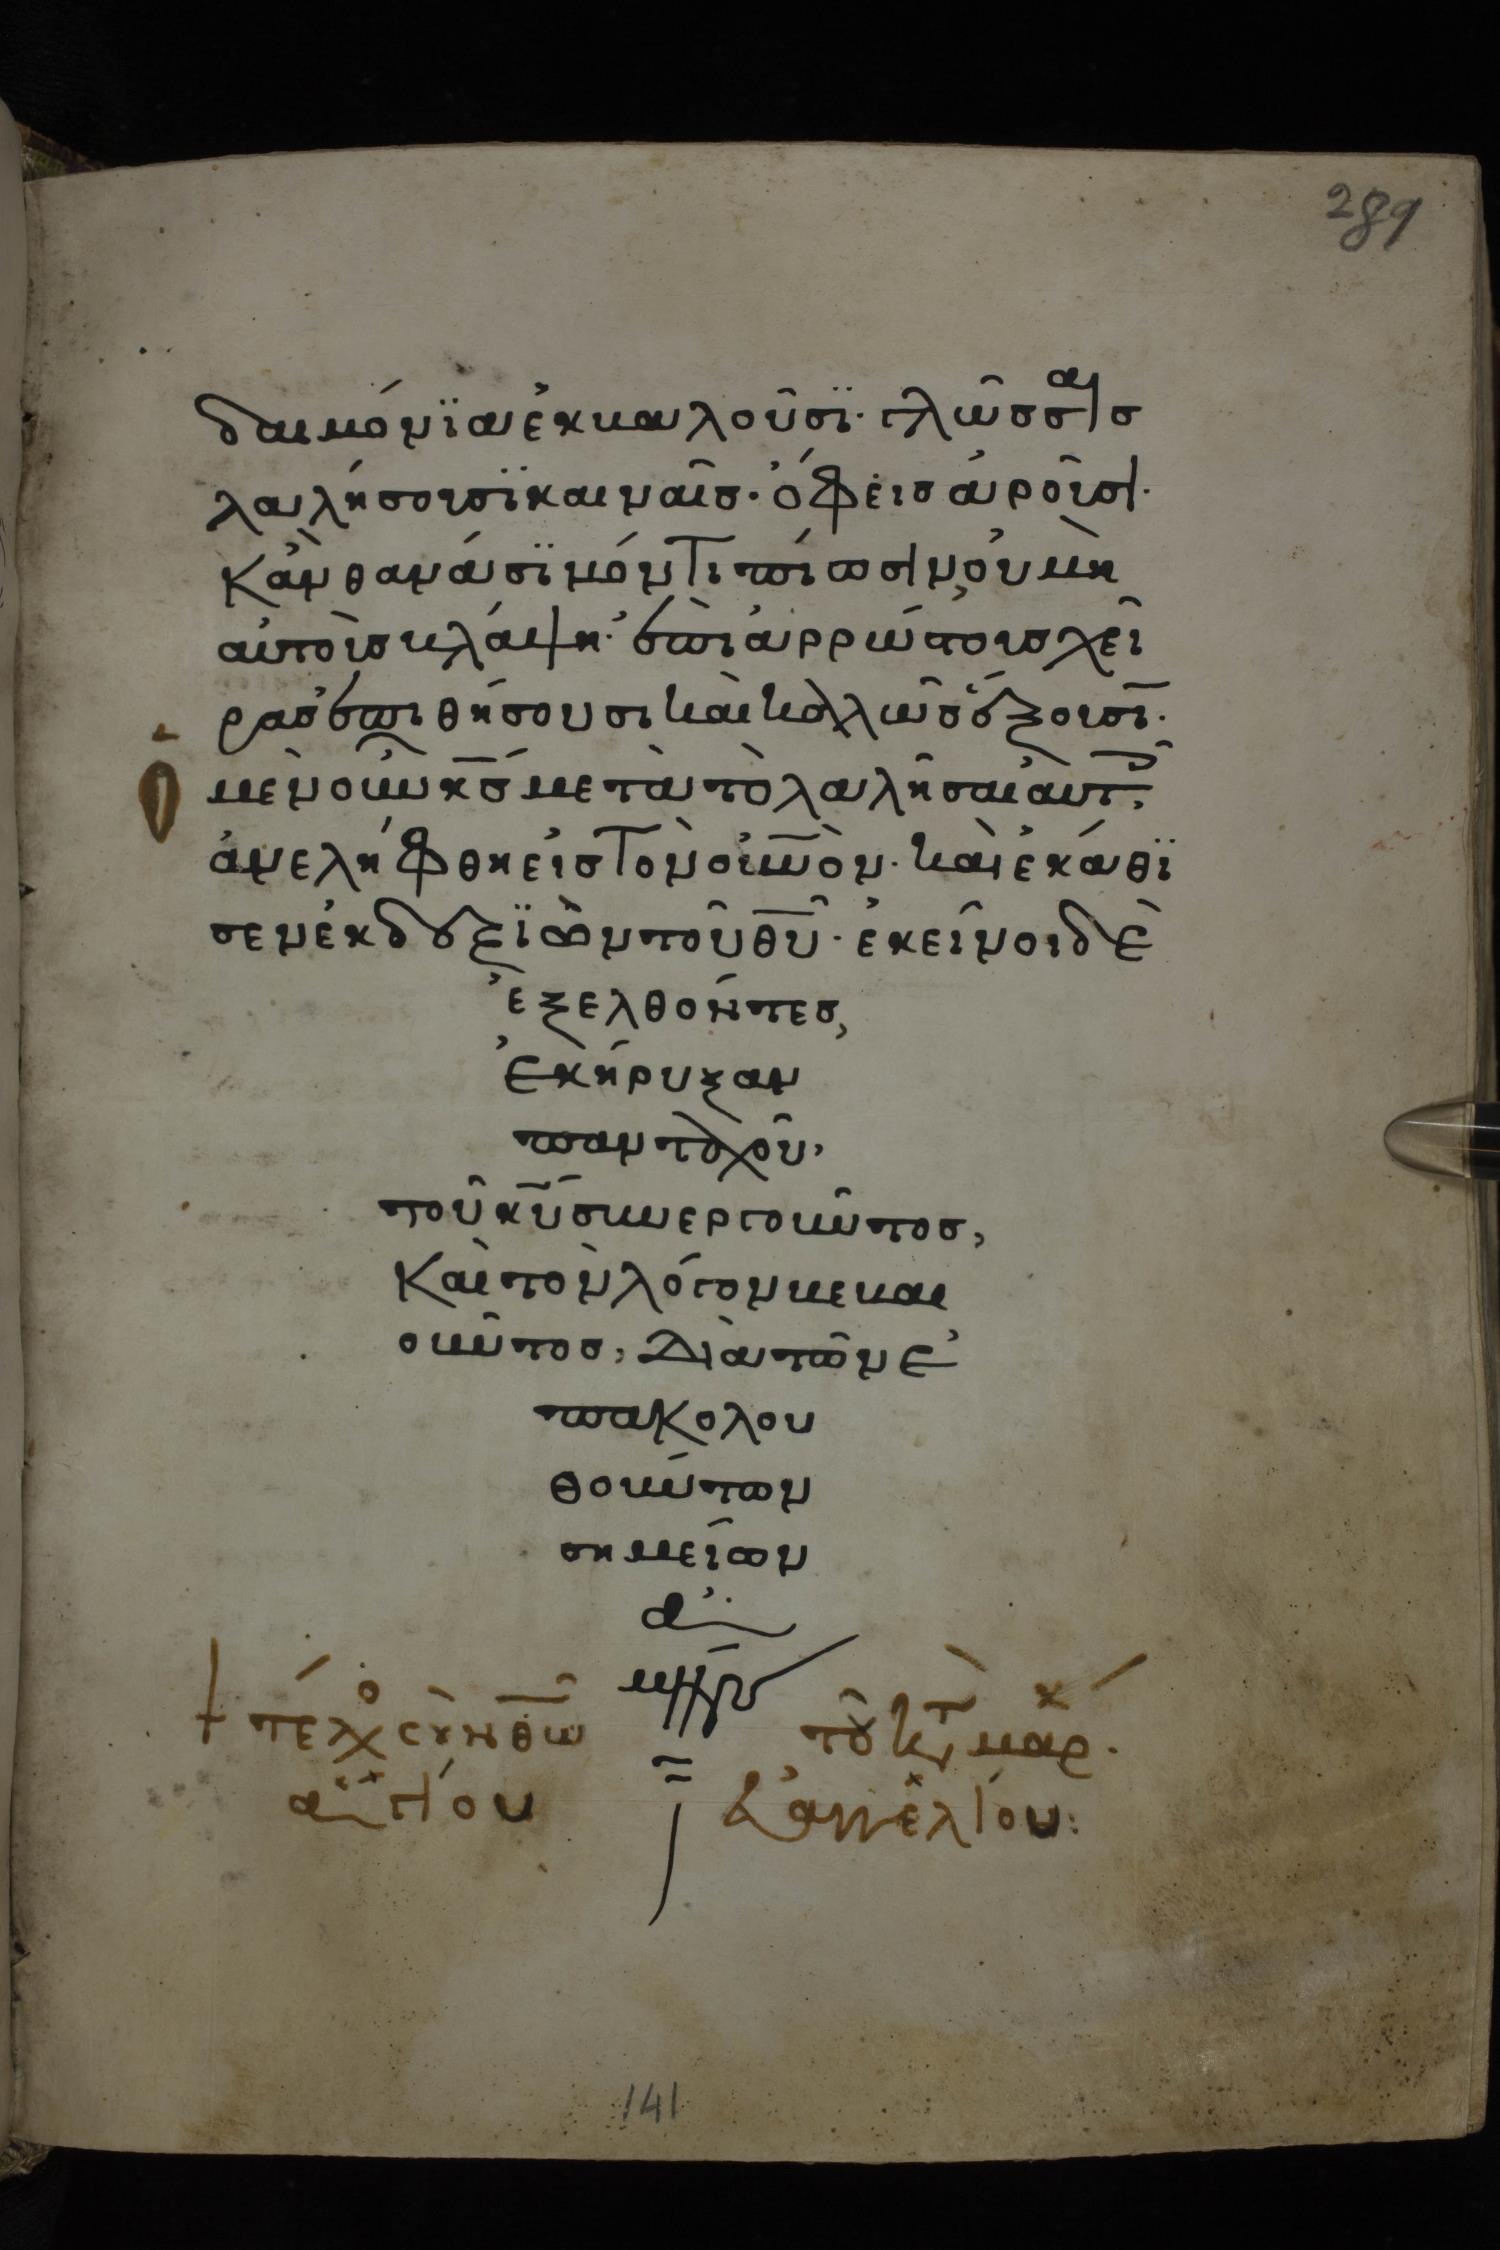 289
δαιμόνϊα ἐκβαλοῦσϊ· γλώσσαις
λαλήσουσϊ καιναῖς· ὄφεις ἀροῦσι·
Κἂν θανάσϊμόν τι πίωσιν, οὐ μὴ
αὐτοὺς βλάψη· ἐπὶ ἀρρώστους χεῖ
ρας ἐπιθήσουσι καὶ καλῶς ἕξουσϊ·
μὲν οὖν κ̅ς̅ μετὰ τὸ λαλῆσαι αὐτ,
ἀνελήφθη εἰς τὸν οὐ̅νὸν· καὶ ἐκάθϊ
σεν ἐκ δεξϊῶν τοῦ θ̅υ̅· ἐκεῖνοι δὲ
ἐξελθόντες,
ἐκήρυξαν
πανταχοῦ,
τοῦ κ̅υ̅ συνεργοῦντος,
Καὶ τὸν λόγον βεβαι
οῦντος, διὰ τῶν ἐ
πακολου
θούντων
σημείων
ἀ
μήν
τοῦ κτ μάρ.
ἁγίου
εὐαγγελίου:
141